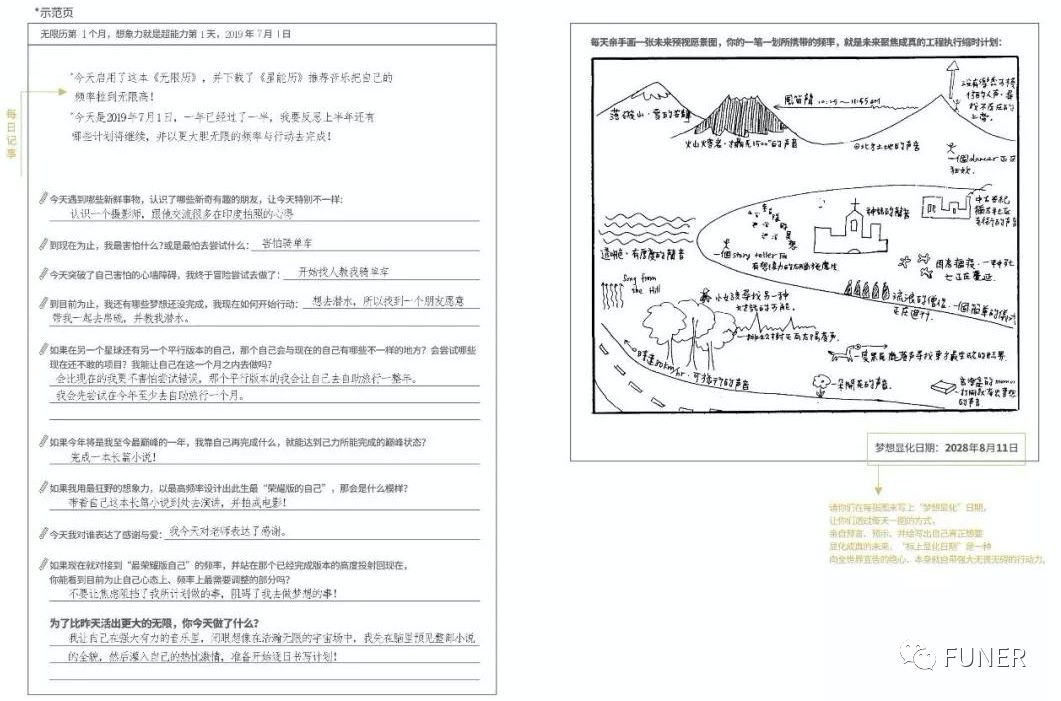 *示范页
无限历第 1个月，想象力就是超能力第 1 天，2019 年 7 月 1 日
每日记事
"今天启用了这本《无限历》，并下载了《星能历》推荐音乐把自己的
频率拉到无限高！
"今天是2019年7月1日，一年已经过了一半，我要反思上半年还有
哪些计划待继续，并以更大胆无限的频率与行动去完成！
今天遇到哪些新鲜事物，认识了哪些新奇有趣的朋友，让今天特别不一样：
认识一个摄影师，跟他交流很多在印度拍照的心得
到现在为止，我最害怕什么？或是最怕去尝试什么： 害怕骑单车
今天突破了自己害怕的心墙障碍，我终于冒险尝试去做了： 开始找人教我骑单车
到目前为止，我还有哪些梦想还没完成，我现在如何开始行动： 想去潜水，所以找到一个朋友愿意
带我一起去帛硫，并教我潜水。
如果在另一个星球还有另一个平行版本的自己，那个自己会与现在的自己有哪些不一样的地方？会尝试哪些
现在还不敢的项目？我能让自己在这一个月之内去做吗？
会比现在的我更不害怕尝试错误，那个平行版本的我会让自己去自助旅行一整年。
我会先尝试在今年至少去自助旅行一个月。
如果今年将是我至今最巅峰的一年，我靠自己再完成什么，就能达到己力所能完成的巅峰状态？
完成一本长篇小说！
如果我用最狂野的想象力，以最高频率设计出此生最“荣耀版的自己”，那会是什么模样？
带着自己这本长篇小说到处去演讲，并拍成电影！
今天我对谁表达了感谢与爱： 我今天对老师表达了感谢。
如果现在就对接到“最荣耀版自己”的频率，并站在那个已经完成版本的高度投射回现在，
你能看到目前为止自己心态上、频率上最需要调整的部分吗？
不要让焦虑阻挡了我所计划做的事，阻碍了我去做梦想的事！
为了比昨天活出更大的无限，你今天做了什么？
我让自己在强大有力的音乐里，闭眼想像在浩瀚无限的宇宙场中，我先在脑里预见整部小说
的全貌，然后灌入自己的热忱激情，准备开始逐日书写计划！
每天亲手画一张未来预视愿景图，你的一笔一划所携带的频率，就是未来聚焦成真的工程执行缩时计划：
一個dancer正在
神話的聲音
透明色，有厚度的聲音
一個story teller
Song from
the Hill
小女孩尋找另一種
一朵開花的聲音
梦想显化日期：2028年8月11日
请你们在每张图末写上“梦想显化”日期，
让你们透过每天一图的方式，
亲自预言、预示、并绘写出自己真正想要
显化成真的未来，“标上显化日期”是一种
向全世界宣告的绝心，本身就自带强大无畏无碍的行动力。
FUNER